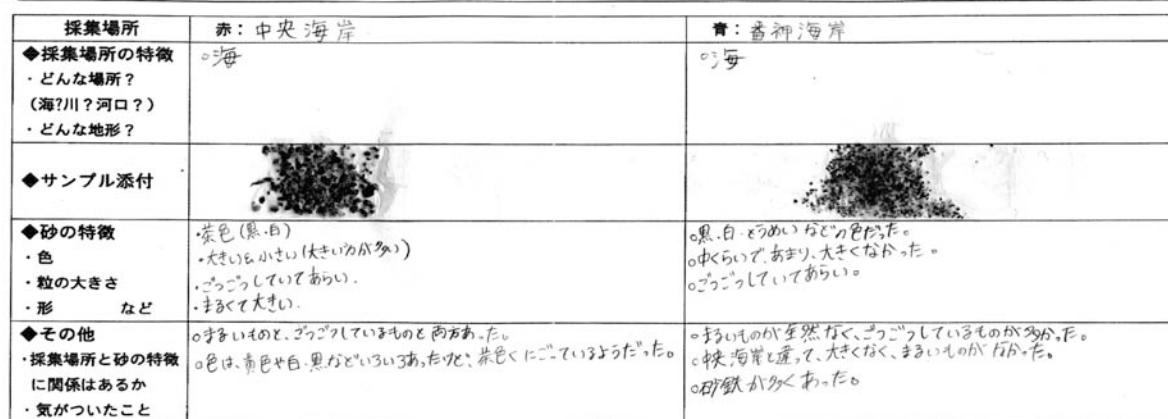 採集場所
赤：中央海岸
青：番神海岸
◆採集場所の特徴
・どんな場所？
（海?川？河口？）
・どんな地形？
○海
○海
◆サンプル添付
◆砂の特徴
・色
・粒の大きさ
・形　など
・茶色(黒・白)
・大きい&小さい(大きい方が多い)
・ごつごつしていてあらい.
・まるくて大きい.
○黒・白・とうめいなどの色だった。
○中くらいで、あまり、大きくなかった。
○ごつごつしていてあらい。
◆その他
・採集場所と砂の特徴
に関係はあるか
・気がついたこと
○まるいものと、ごつごつしているものと両方あった。
○色は、黄色や白・黒などいろいろあったけど、茶色くにごっているようだった。
○まるいものが全然なく、ごつごつしているものが多かった。
○中央海岸と違って、大きくなく、まるいものがなかった。
○砂鉄が多くあった。